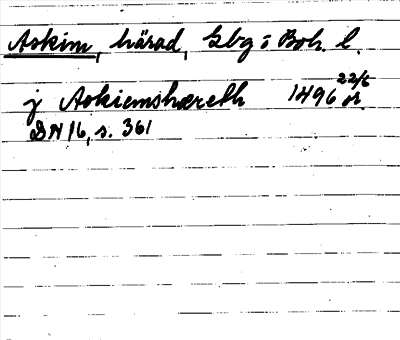 Askim, härad, Gbg o Boh. l.
j Askiemshæreth 1496 22/6 or.
DN 16, s. 361